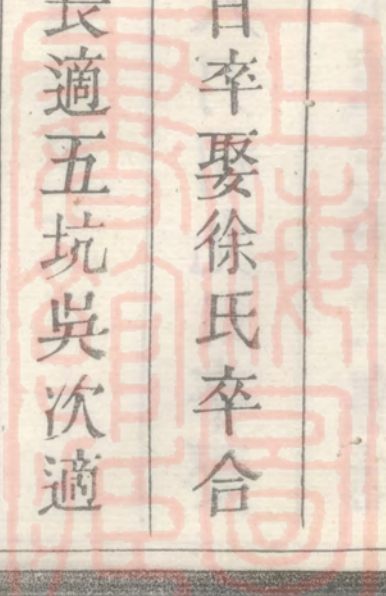 日卒娶徐氏卒合
長適五坑吳次適